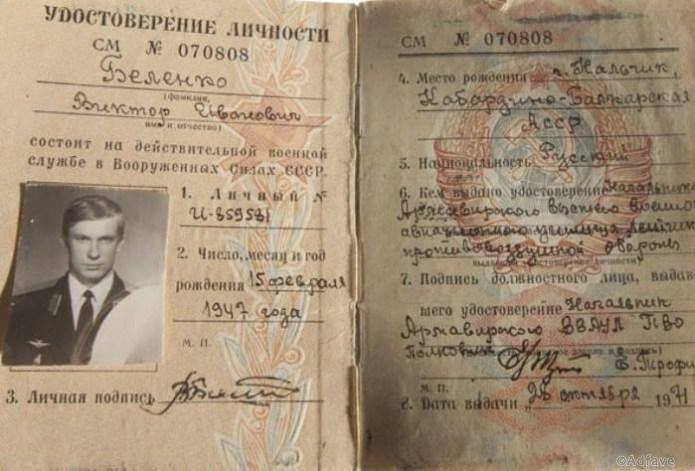 УДОСТОВЕРЕНИЕ ЛИЧНОСТИ
СМ № 070808
Беленко
(фамилия,
Виктор Иванович
имя и отчество)
состоит на действительной военной
службе в Вооруженных Силах СССР.
1. Личный №
И-859581
2. Число, месяц и год
рождения 15 февраля
1947 года
М. П.
3. Личная подпись
СМ № 070808
4. Место рождения г. Нальчик,
Кабардино-Балкарская
АССР
5. Национальность Русский
6. Кем выдано удостоверение Начальник
Армавирского высшего военно
авиационного училища летчик
противовоздушной обороны
7. Подпись должностного лица, выдав
шего удостоверение Начальник
Армавирского ВВАУЛ ПВО
полковник
М. П.
8. Дата выдачи „28 октября 1971
©Adfave